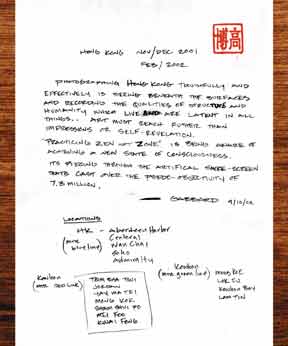 HONG KONG NOV/DEC 2001
FEB/2002
PHOTOGRAPHING HONG KONG TRUTHFULLY AND
EFFECTIVELY, IS SEEING BENEATH THE SURFACES
AND RECORDING THE QUALITIES OF STRUCTURE AND
HUMANITY WHICH LIVE AND ARE LATENT IN ALL
THINGS.. ART MUST REACH FURTHER THAN
IMPRESSIONS OR SELF-REVELATION.
"PRACTICING ZEN OR ZONE" IS BEING AWARE OF
ACHIEVING A NEW STATE OF CONSCIOUSNESS.
IT'S SEEING THROUGH THE ARTIFICIAL SMOKE-SCREEN
THAT'S CAST OVER THE PSEUDO-OBJECTIVITY OF
7.3 MILLION.
9/10/02
LOCATIONS
HK - Aberdeen Harbor
(MTR blue line) Central
Wan Chai
Soho
Admiralty
Kowloon
(MTR red line)
TSIM SHA TSUI
JORDAN
YAU MA TEI
MONG KOK
SHAM SHUI PO
MEI FOO
KWAI FONG
Kowloon
(MTR green line)
MONG KOK
LOK FU
KOWLOON BAY
LAM TIN